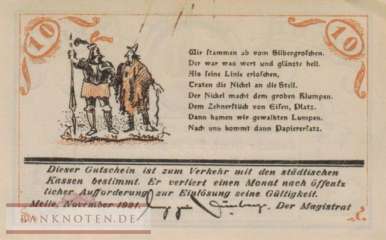 10
10
Wir stammen ab vom Silbergroschen.
Der war was wert und glänzte hell.
Als seine Linie erloschen,
Traten die Nickel an die Stell.
Der Nickel macht dem groben Klumpen,
Dem Zehnerstück von Eisen, Platz.
Dann kamen wir gewalkten Lumpen,
Nach uns kommt dann Papierersatz.
Dieser Gutschein ist zum Verkehr mit den städtischen
Kassen bestimmt. Er verliert einen Monat nach öffentz
licher Aufforderung zur Einlösung seine Gültigkeit.
Melle, November 1921. Der Magistrat
BANKNOTEN.DE